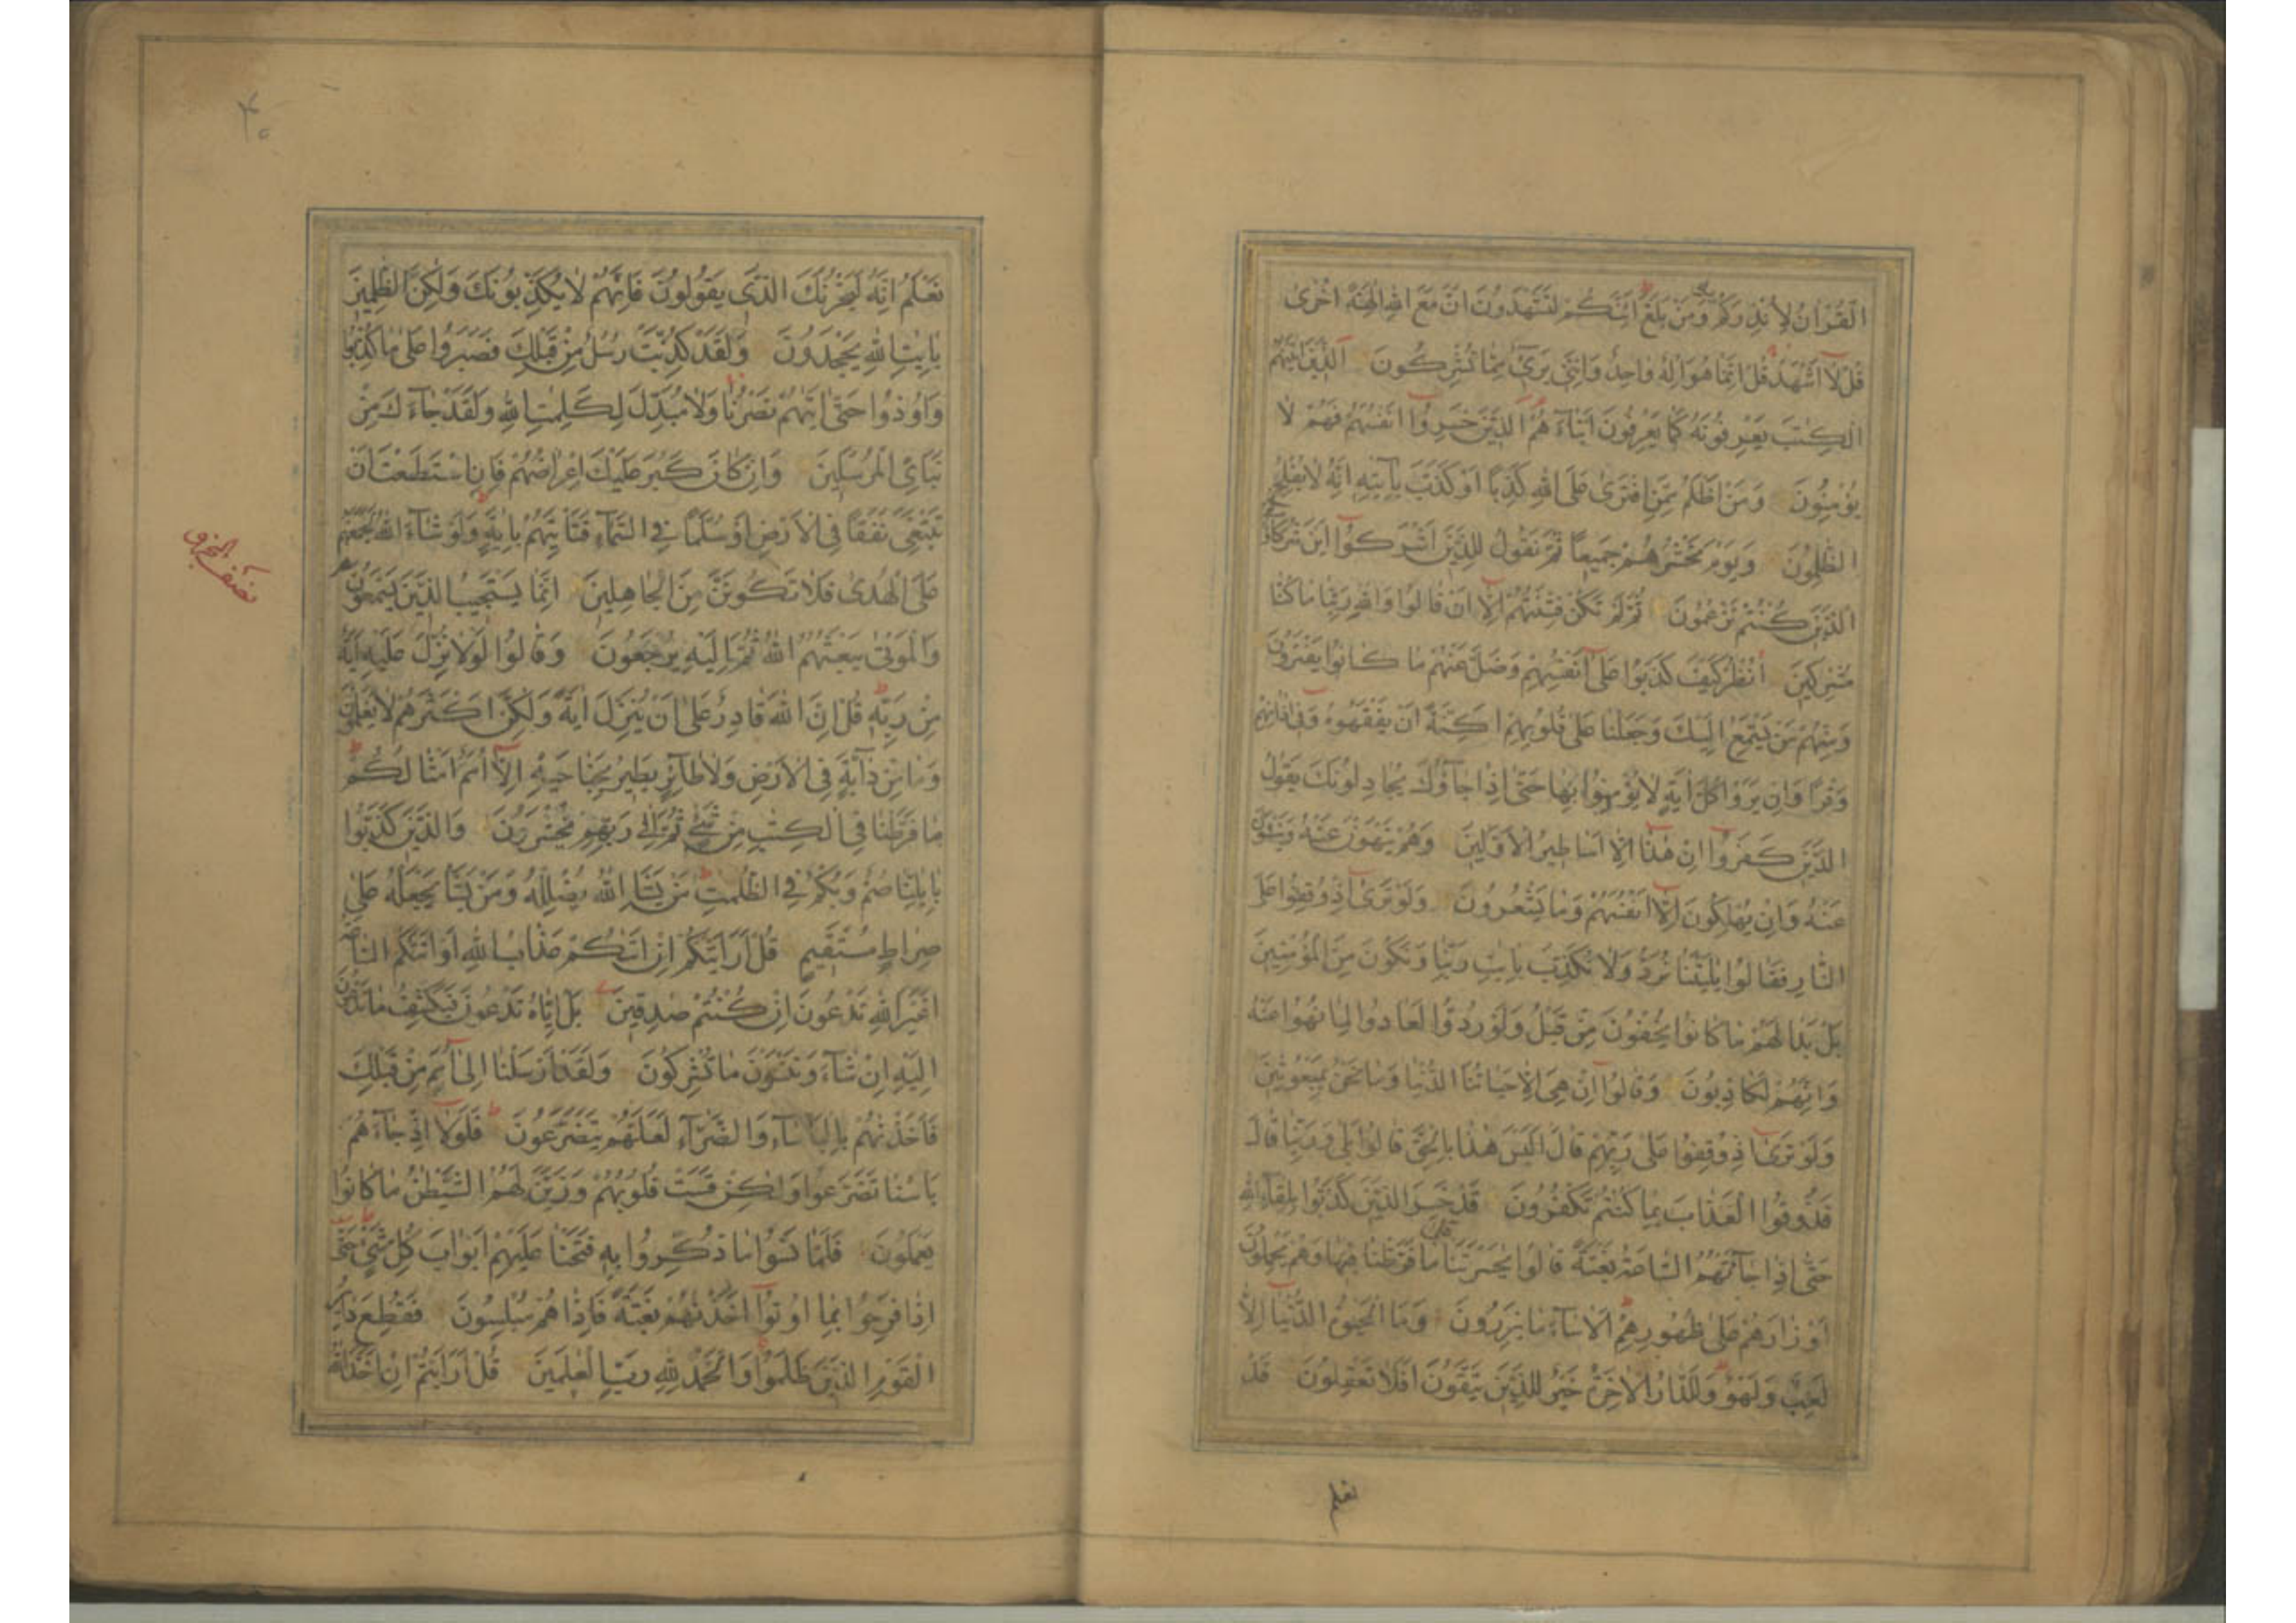 الْقُرْاٰنُ لِاُنْذِرَكُمْ وَمَنْ بَلَغَ اَئِنَّكُمْ لَتَشْهَدُونَ اَنَّ مَعَ اللهِ اٰلِهَةً اُخْرٰى
قُلْ لَآ اَشْهَدُ قُلْ اِنَّمَا هُوَ اِلٰهٌ وَاحِدٌ وَاِنَّنِى بَرِىٓءٌ مِمَّا تُشْرِكُونَ اَلَّذِينَ اٰتَيْنَاهُمُ
الْكِتٰبَ يَعْرِفُونَهُ كَمَا يَعْرِفُونَ اَبْنَآءَ هُمْ اَلَّذِينَ خَسِرُوٓا اَنْفُسَهُمْ فَهُمْ لَا
يُؤْمِنُونَ وَمَنْ اَظْلَمُ مِمَّنِ افْتَرٰى عَلَى اللهِ كَذِبًا اَوْ كَذَّبَ بِاٰيٰتِهِ اِنَّهُ لَا يُفْلِحُ
الظّٰلِمُونَ وَيَوْمَ نَحْشُرُهُمْ جَمِيعًا ثُمَّ نَقُولُ لِلَّذِينَ اَشْرَكُوٓا اَيْنَ شُرَكَاؤُكُمُ
الَّذِينَ كُنْتُمْ تَزْعُمُونَ ثُمَّ لَمْ تَكُنْ فِتْنَتُهُمْ اِلَّآ اَنْ قَالُوا وَاللهِ رَبِّنَا مَا كُنَّا
مُشْرِكِينَ اُنْظُرْ كَيْفَ كَذَبُوا عَلٰٓى اَنْفُسِهِمْ وَضَلَّ عَنْهُمْ مَا كَانُوا يَفْتَرُونَ
وَمِنْهُمْ مَنْ يَسْتَمِعُ اِلَيْكَ وَجَعَلْنَا عَلٰى قُلُوبِهِمْ اَكِنَّةً اَنْ يَفْقَهُوهُ وَفِىٓ اٰذَانِهِمْ
وَقْرًا وَاِنْ يَرَوْا كُلَّ اٰيَةٍ لَا يُؤْمِنُوا بِهَا حَتّٰىٓ اِذَا جَآؤُكَ يُجَادِلُونَكَ يَقُولُ
الَّذِينَ كَفَرُوٓا اِنْ هٰذَٓا اِلَّٓا اَسَاطِيرُ الْاَوَّلِينَ وَهُمْ يَنْهَوْنَ عَنْهُ وَيَنْئَوْنَ
عَنْهُ وَاِنْ يُهْلِكُونَ اِلَّآ اَنْفُسَهُمْ وَمَا يَشْعُرُونَ وَلَوْ تَرٰىٓ اِذْ وُقِفُوا عَلَى
النَّارِ فَقَالُوا يٰلَيْتَنَا نُرَدُّ وَلَا نُكَذِّبَ بِاٰيٰتِ رَبِّنَا وَنَكُونَ مِنَ الْمُؤْمِنِينَ
بَلْ بَدَا لَهُمْ مَا كَانُوا يُخْفُونَ مِنْ قَبْلُ وَلَوْ رُدُّوا لَعَادُوا لِمَا نُهُوا عَنْهُ
وَاِنَّهُمْ لَكَاذِبُونَ وَقَالُوٓا اِنْ هِىَ اِلَّا حَيَاتُنَا الدُّنْيَا وَمَا نَحْنُ بِمَبْعُوثِينَ
وَلَوْ تَرٰىٓ اِذْ وُقِفُوا عَلٰى رَبِّهِمْ قَالَ اَلَيْسَ هٰذَا بِالْحَقِّ قَالُوا بَلٰى وَرَبِّنَا قَالَ
فَذُوقُوا الْعَذَابَ بِمَا كُنْتُمْ تَكْفُرُونَ قَدْ خَسِرَ الَّذِينَ كَذَّبُوا بِلِقَآءِ اللهِ
حَتّٰىٓ اِذَا جَآءَتْهُمُ السَّاعَةُ بَغْتَةً قَالُوا يٰحَسْرَتَنَا عَلٰى مَا فَرَّطْنَا فِيهَا وَهُمْ يَحْمِلُونَ
اَوْزَارَهُمْ عَلٰى ظُهُورِهِمْ اَلَا سَآءَ مَا يَزِرُونَ وَمَا الْحَيٰوةُ الدُّنْيَآ اِلَّا
لَعِبٌ وَلَهْوٌ وَلَلدَّارُ الْاٰخِرَةُ خَيْرٌ لِلَّذِينَ يَتَّقُونَ اَفَلَا تَعْقِلُونَ قَدْ
نعلم
۴۰
نَعْلَمُ اِنَّهُ لَيَحْزُنُكَ الَّذِى يَقُولُونَ فَاِنَّهُمْ لَا يُكَذِّبُونَكَ وَلٰكِنَّ الظّٰلِمِينَ
بِاٰيٰتِ اللهِ يَجْحَدُونَ وَلَقَدْ كُذِّبَتْ رُسُلٌ مِنْ قَبْلِكَ فَصَبَرُوا عَلٰى مَا كُذِّبُوا
وَاُوذُوا حَتّٰىٓ اَتٰيهُمْ نَصْرُنَا وَلَا مُبَدِّلَ لِكَلِمٰتِ اللهِ وَلَقَدْ جَآءَكَ مِنْ
نَبَائِ الْمُرْسَلِينَ وَاِنْ كَانَ كَبُرَ عَلَيْكَ اِعْرَاضُهُمْ فَاِنِ اسْتَطَعْتَ اَنْ
تَبْتَغِىَ نَفَقًا فِى الْاَرْضِ اَوْ سُلَّمًا فِى السَّمَآءِ فَتَاْتِيَهُمْ بِاٰيَةٍ وَلَوْ شَآءَ اللهُ لَجَمَعَهُمْ
نصف الحزب
عَلَى الْهُدٰى فَلَا تَكُونَنَّ مِنَ الْجَاهِلِينَ اِنَّمَا يَسْتَجِيبُ الَّذِينَ يَسْمَعُونَ
وَالْمَوْتٰى يَبْعَثُهُمُ اللهُ ثُمَّ اِلَيْهِ يُرْجَعُونَ وَقَالُوا لَوْلَا نُزِّلَ عَلَيْهِ اٰيَةٌ
مِنْ رَبِّهِ قُلْ اِنَّ اللهَ قَادِرٌ عَلٰٓى اَنْ يُنَزِّلَ اٰيَةً وَلٰكِنَّ اَكْثَرَهُمْ لَا يَعْلَمُونَ
وَمَا مِنْ دَآبَّةٍ فِى الْاَرْضِ وَلَا طَآئِرٍ يَطِيرُ بِجَنَاحَيْهِ اِلَّآ اُمَمٌ اَمْثَالُكُمْ
مَا فَرَّطْنَا فِى الْكِتٰبِ مِنْ شَىْءٍ ثُمَّ اِلٰى رَبِّهِمْ يُحْشَرُونَ وَالَّذِينَ كَذَّبُوا
بِاٰيٰتِنَا صُمٌّ وَبُكْمٌ فِى الظُّلُمٰتِ مَنْ يَشَاِ اللهُ يُضْلِلْهُ وَمَنْ يَشَاْ يَجْعَلْهُ عَلٰى
صِرَاطٍ مُسْتَقِيمٍ قُلْ اَرَاَيْتَكُمْ اِنْ اَتٰيكُمْ عَذَابُ اللهِ اَوْ اَتَتْكُمُ السَّاعَةُ
اَغَيْرَ اللهِ تَدْعُونَ اِنْ كُنْتُمْ صٰدِقِينَ بَلْ اِيَّاهُ تَدْعُونَ فَيَكْشِفُ مَا تَدْعُونَ
اِلَيْهِ اِنْ شَآءَ وَتَنْسَوْنَ مَا تُشْرِكُونَ وَلَقَدْ اَرْسَلْنَا اِلٰٓى اُمَمٍ مِنْ قَبْلِكَ
فَاَخَذْنٰهُمْ بِالْبَاْسَآءِ وَالضَّرَّآءِ لَعَلَّهُمْ يَتَضَرَّعُونَ فَلَوْلَآ اِذْ جَآءَهُمْ
بَاْسُنَا تَضَرَّعُوا وَلٰكِنْ قَسَتْ قُلُوبُهُمْ وَزَيَّنَ لَهُمُ الشَّيْطٰنُ مَا كَانُوا
يَعْمَلُونَ فَلَمَّا نَسُوا مَا ذُكِّرُوا بِهِ فَتَحْنَا عَلَيْهِمْ اَبْوَابَ كُلِّ شَىْءٍ حَتّٰى
اِذَا فَرِحُوا بِمَٓا اُوتُوٓا اَخَذْنٰهُمْ بَغْتَةً فَاِذَا هُمْ مُبْلِسُونَ فَقُطِعَ دَابِرُ
الْقَوْمِ الَّذِينَ ظَلَمُوا وَالْحَمْدُ لِلّٰهِ رَبِّ الْعٰلَمِينَ قُلْ اَرَاَيْتُمْ اِنْ اَخَذَ اللهُ